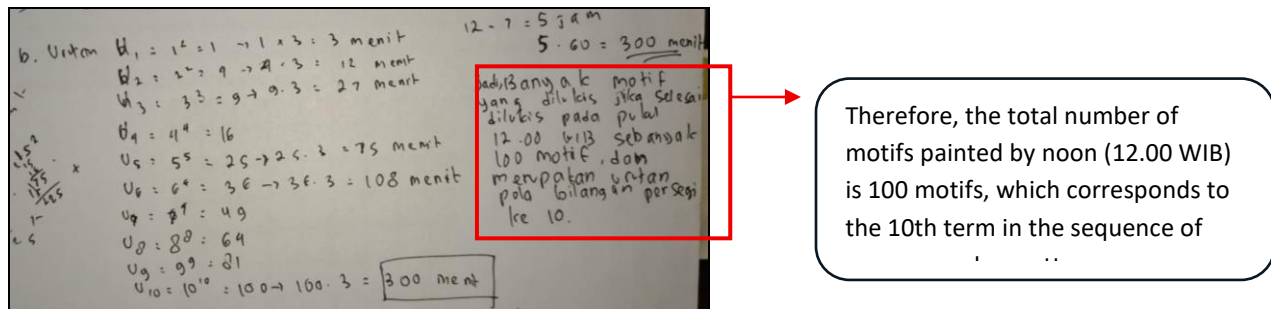 b. Urutan U₁ = 1² = 1 → 1 × 3 = 3 menit
U₂ = 2² = 4 → 4 . 3 = 12 menit
U₃ = 3³ = 9 → 9 . 3 = 27 menit
U₄ = 4⁴ = 16
U₅ = 5⁵ = 25 → 25 . 3 = 75 menit
U₆ = 6⁶ = 36 → 36 . 3 = 108 menit
= 49
U₈ = 8⁸ = 64
U₉ = 9⁹ = 81
U₁₀ = 10¹⁰ = 100 → 100 . 3 = 300 menit
12 - 7 = 5 jam
5 . 60 = 300 menit
jadi, Banyak motif
yang dilukis jika selesai
dilukis pada pukul
12.00 WIB sebanyak
100 motif, dan
merupakan urutan
pola bilangan persegi
ke 10.
Therefore, the total number of
motifs painted by noon (12.00 WIB)
is 100 motifs, which corresponds to
the 10th term in the sequence of